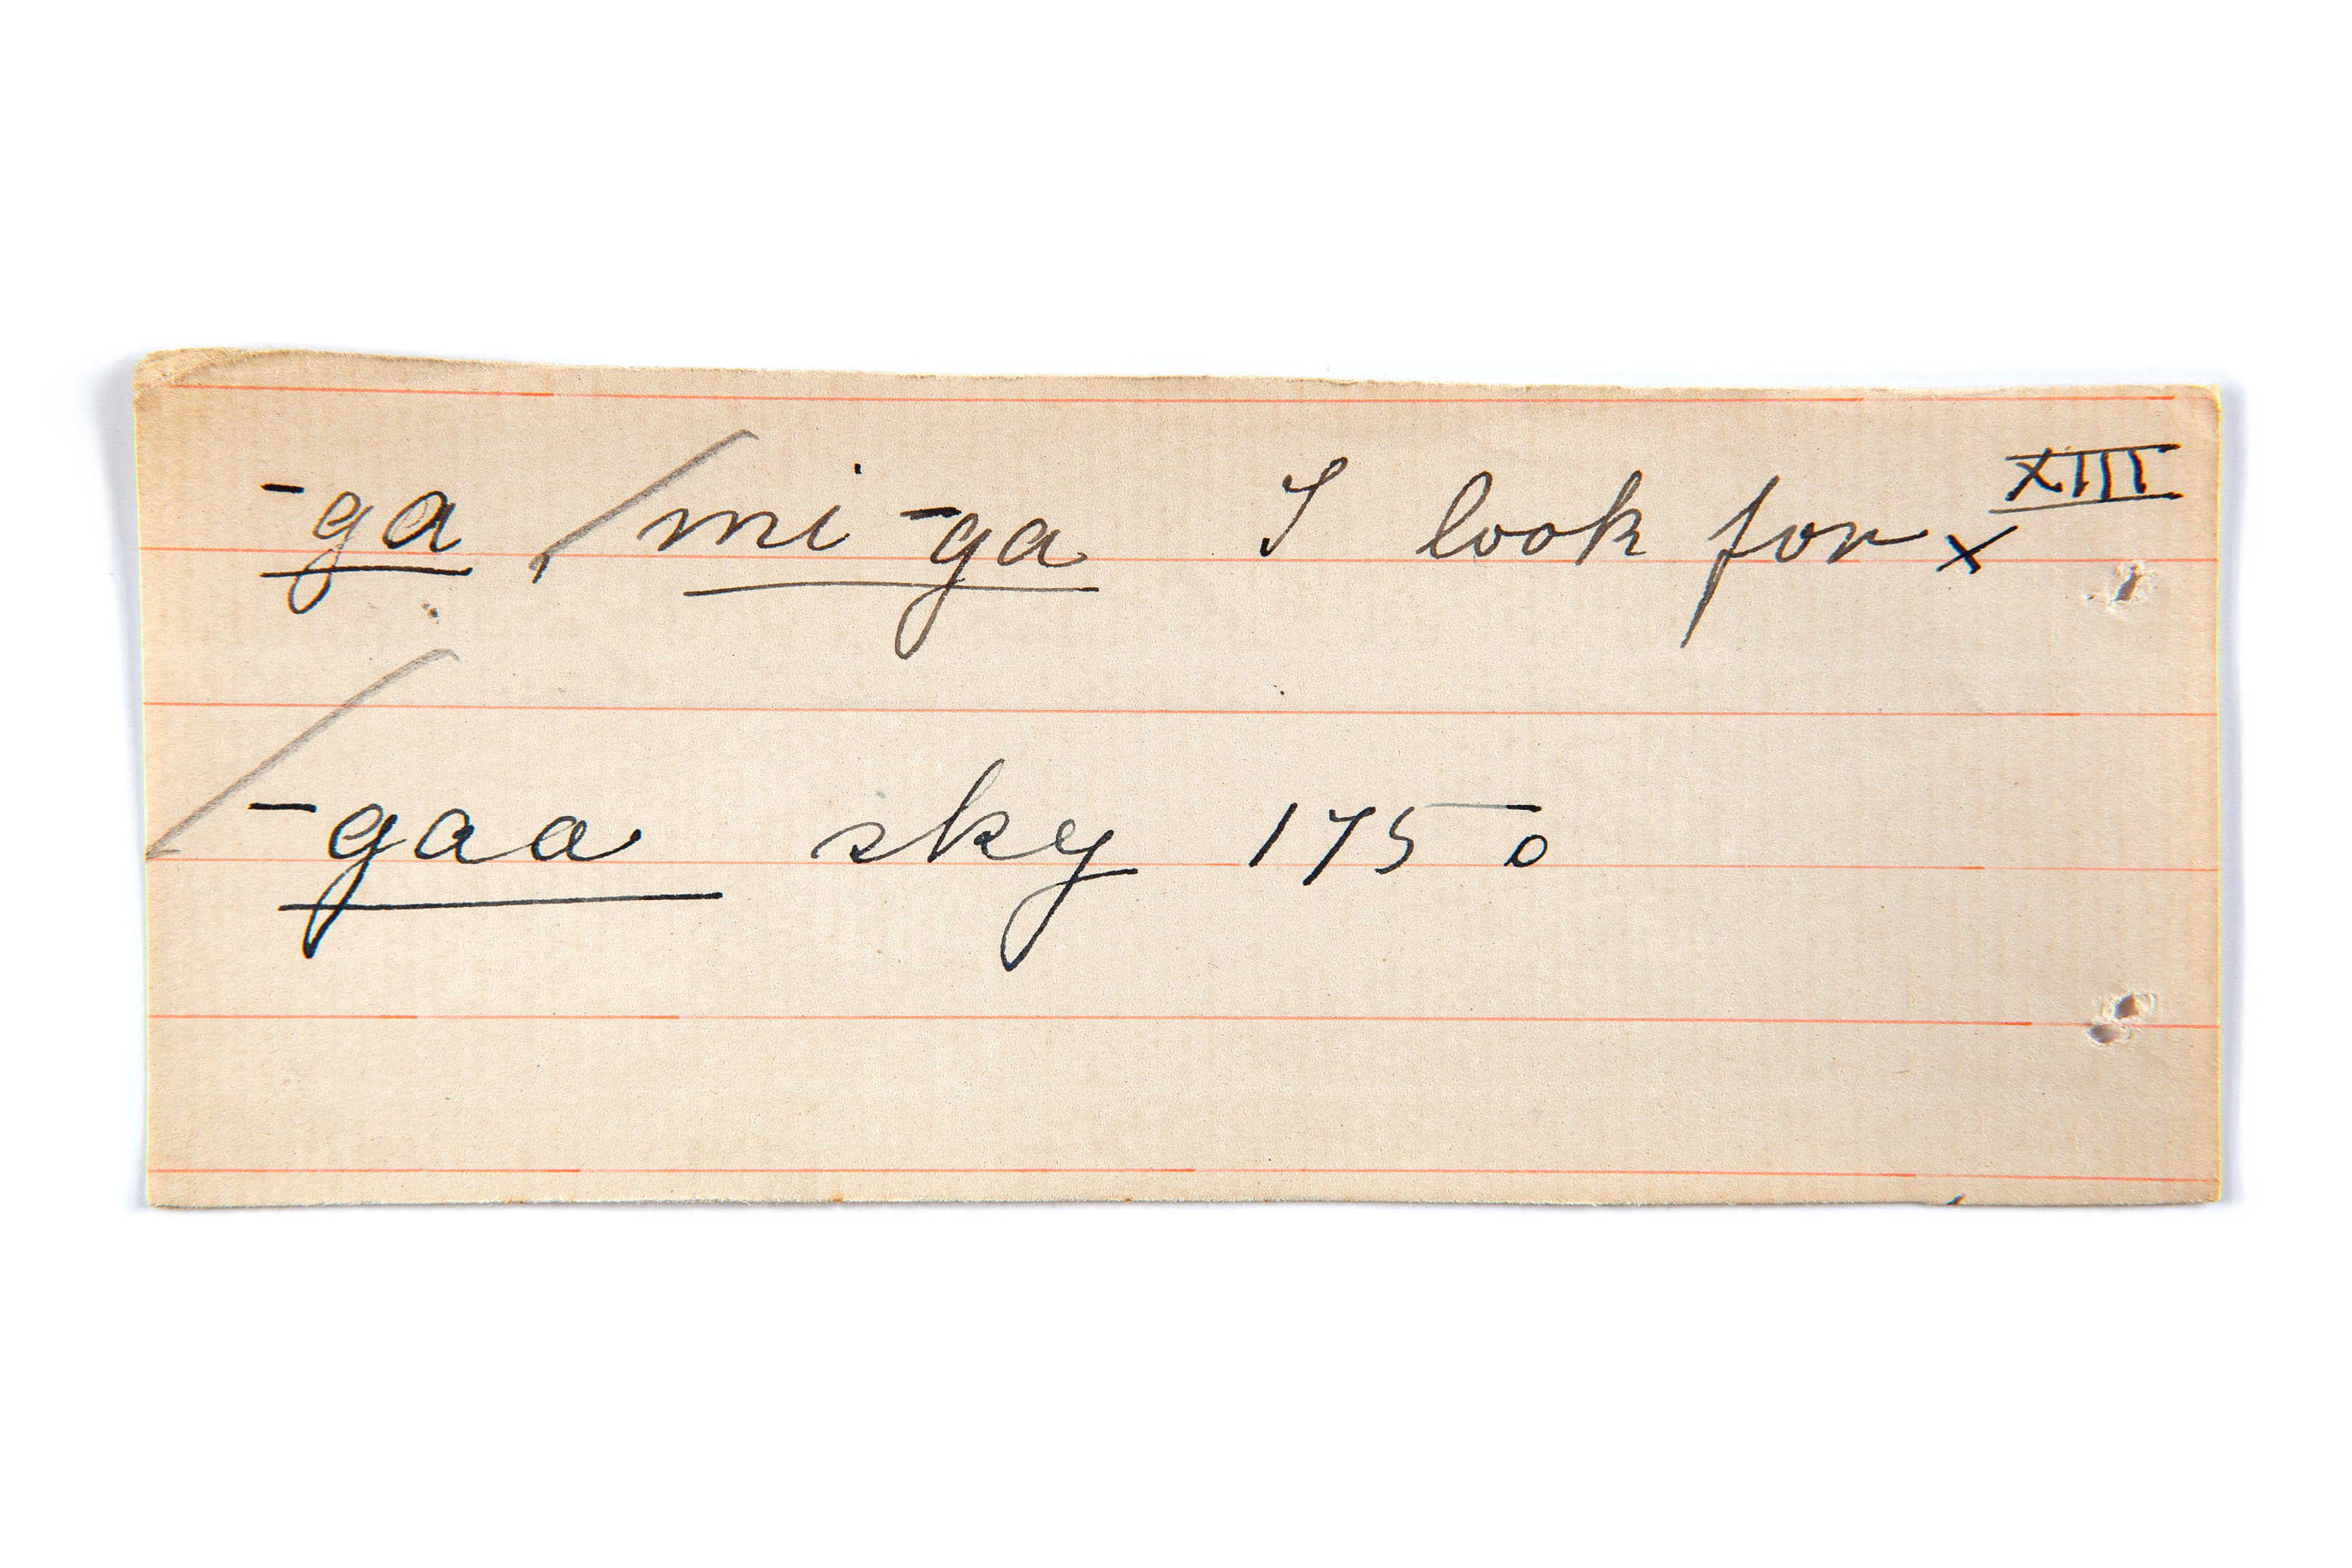 -ga /mi-ga I look for x XIII
-gaa sky 175 o